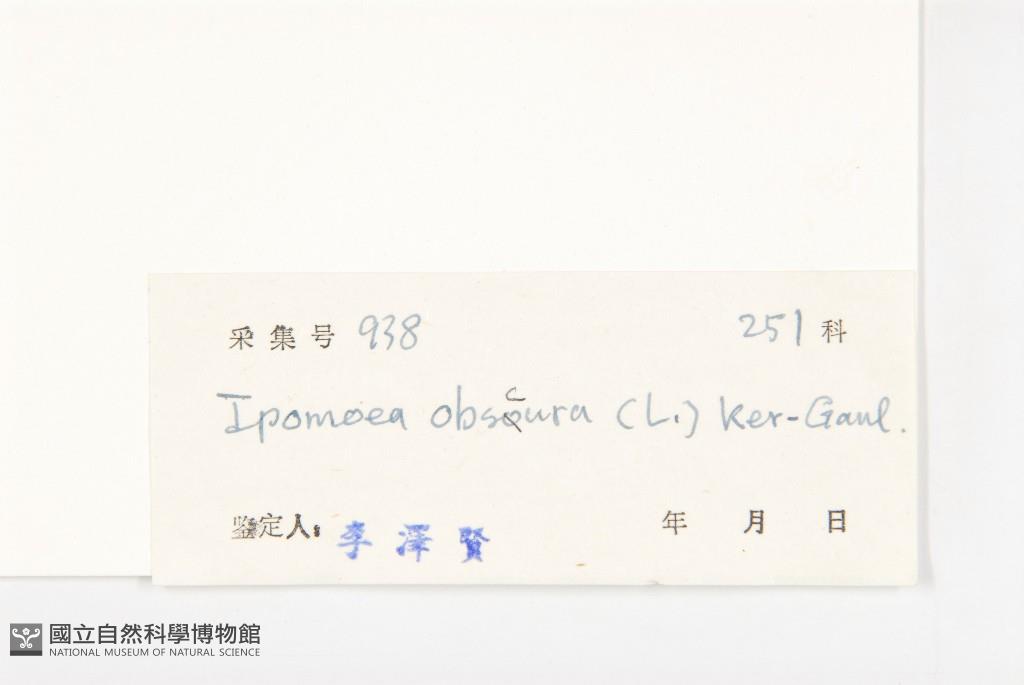 采集号 938 251 科
Ipomoea obscura (L.) Ker-Gaul.
鉴定人: 李澤賢 年 月 日
國立自然科學博物館
NATIONAL MUSEUM OF NATURAL SCIENCE